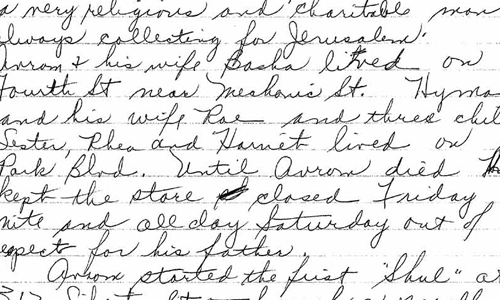 a very religious and charitable man
always collecting for Jerusalem.
Avrom & his wife Basha lived on
Fourth St near Mechanic St. Hyma
and his wife Rae and three chil
Sester, Rhea and Harriet lived on
Park Blvd. Until Avrom died H
kept the store closed Friday
nite and all day Saturday out of
respect for his father.
Avrom started the first "Shul" a